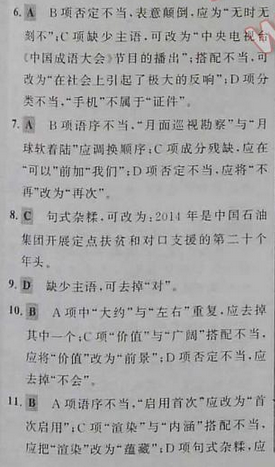 6. A　B 项否定不当,表意颠倒,应为“无时无
刻不”;C 项缺少主语,可改为“中央电视台
《中国成语大会》节目的播出”;搭配不当,可
改为“在社会上引起了极大的反响”;D 项分
类不当,“手机”不属于“证件”。
7. A　B 项语序不当,“月面巡视勘察”与“月
球软着陆”应调换顺序;C 项成分残缺,应在
“可以”前加“我们”;D 项否定不当,应将“不
再”改为“再次”。
8. C　句式杂糅,可改为:2014 年是中国石油
集团开展定点扶贫和对口支援的第二十个
年头。
9. D　缺少主语,可去掉“对”。
10. B　A 项中“大约”与“左右”重复,应去掉
其中一个;C 项“价值”与“广阔”搭配不当,
应将“价值”改为“前景”;D 项否定不当,应
去掉“不会”。
11. B　A 项语序不当,“启用首次”应改为“首
次启用”;C 项“渲染”与“内涵”搭配不当,
应把“渲染”改为“蕴藏”;D 项句式杂糅,应